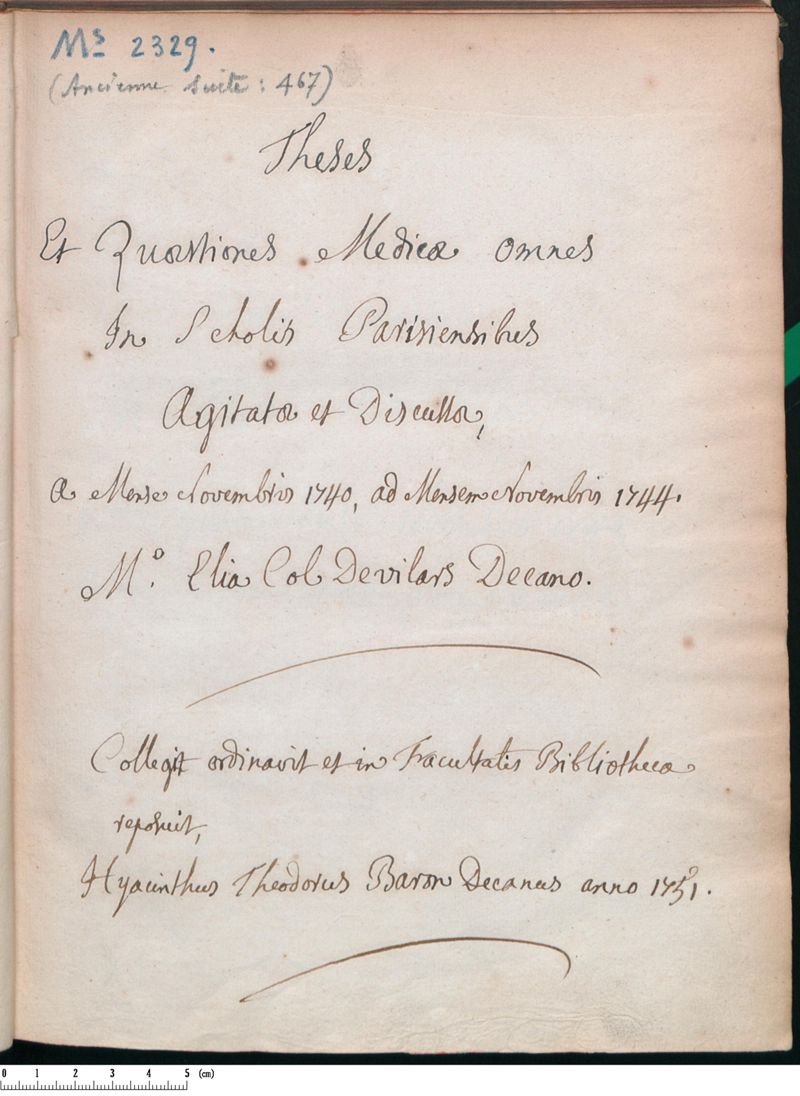 Ms 2329.
(Ancienne suite : 467)
Theses
Et Quæstiones Medicæ omnes
In Scholis Parisiensibus
Agitatæ et Discussæ,
A Mense Novembris 1740, ad Mensem Novembris 1744.
M.º Elia Col Devilars Decano.
Collegit ordinavit et in Facultatis Bibliotheca
reposuit,
Hyacinthus Theodorus Baron Decanus anno 1751.
0 1 2 3 4 5 (cm)